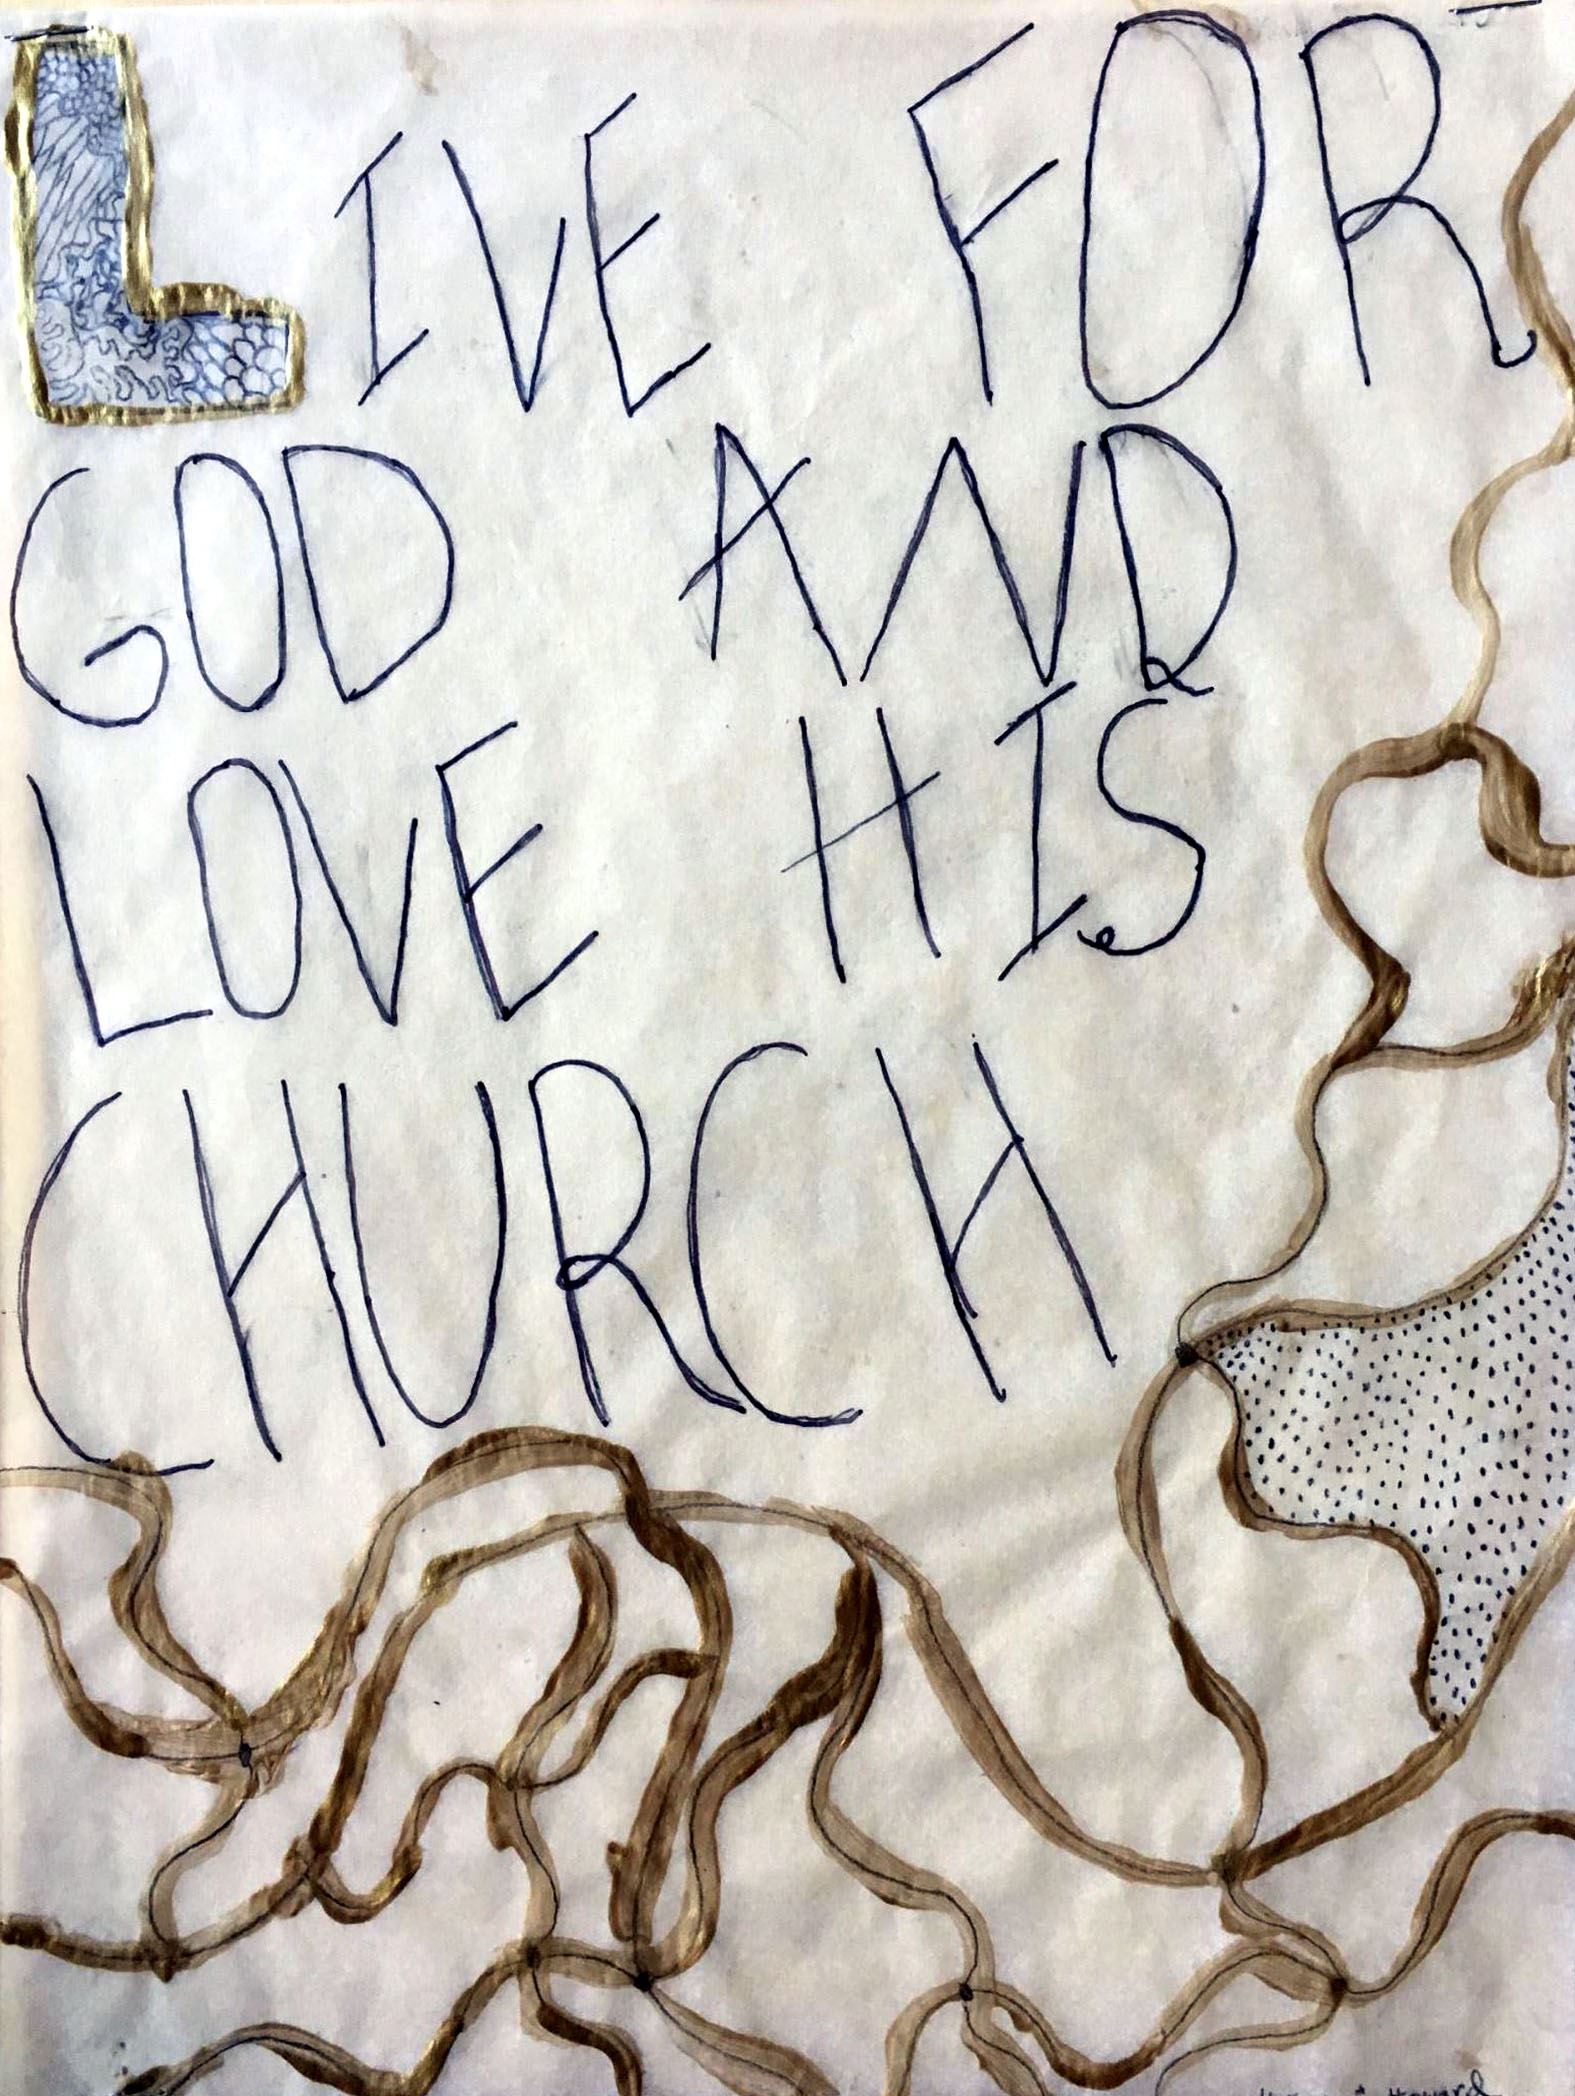 LIVE FOR
GOD AND
LOVE HIS
CHURCH
Howard